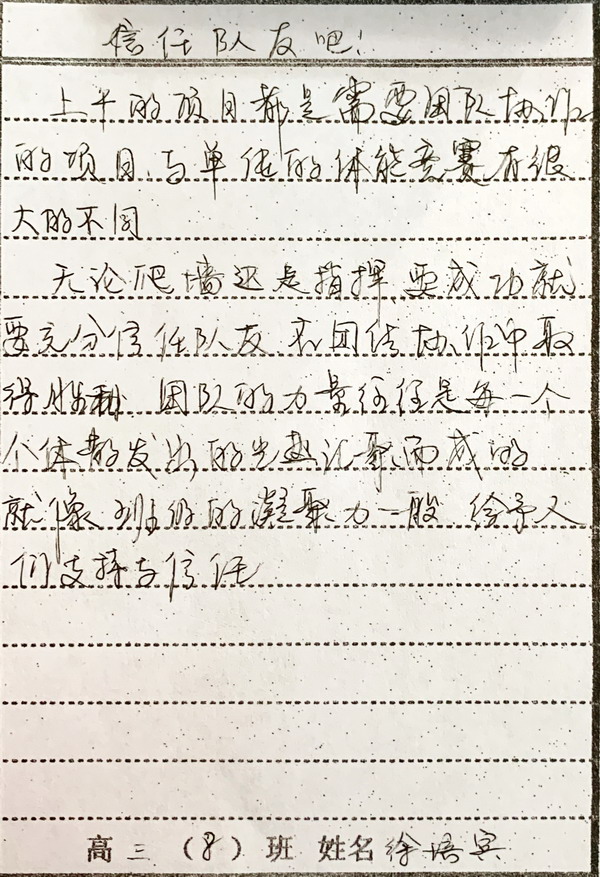 信任队友吧!
上午的项目都是需要团队协作
的项目,与单纯的体能竞赛有很
大的不同
无论爬墙还是指挥,要成功就
要充分信任队友 在团结协作中取
得胜利 团队的力量往往是每一个
个体散发出的光热汇聚而成的
就像班级的凝聚力一般 给予人
们支持与信任
高三(8)班 姓名徐培